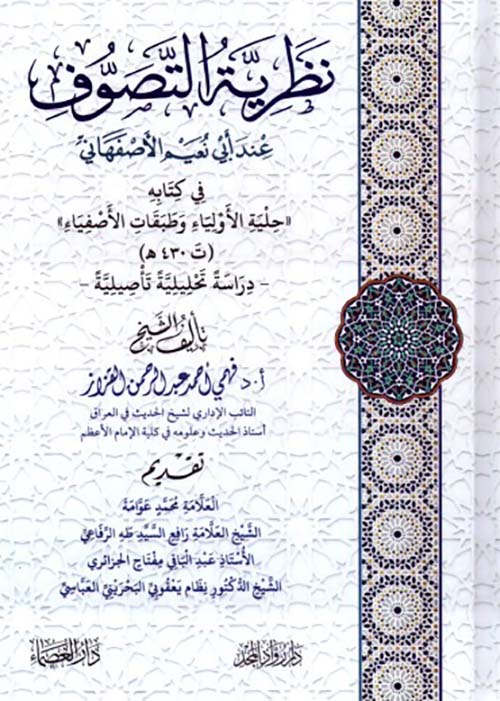 نَظَرِيَّةُ التَّصَوُّفِ
عِنْدَ أَبِي نُعَيْمٍ الأَصْفَهَانِيِّ
فِي كِتَابِهِ
«حِلْيَةِ الأَوْلِيَاءِ وَطَبَقَاتِ الأَصْفِيَاءِ»
(تَ ٤٣٠ هـ)
- دِرَاسَةً تَحْلِيلِيَّةً تَأْصِيلِيَّةً -
تأليف الشيخ
أ. د فهمي أحمد عبد الرحمن القزاز
النائب الإداري لشيخ الحديث في العراق
أستاذ الحديث وعلومه في كلية الإمام الأعظم
تقديم
العَلَّامَةِ مُحَمَّد عَوَّامَة
الشَّيْخِ العَلَّامَةِ رَافِعِ السَّيِّد طَه الرِّفَاعِيّ
الأُسْتَاذِ عَبْدِ البَاقِي مِفْتَاح الجَزَائِرِي
الشَّيْخِ الدُّكْتُورِ نِظَام يَعْقُوبِيّ البَحْرَيْنِيّ العَبَّاسِيّ
دار رواد المجد
دار العصماء